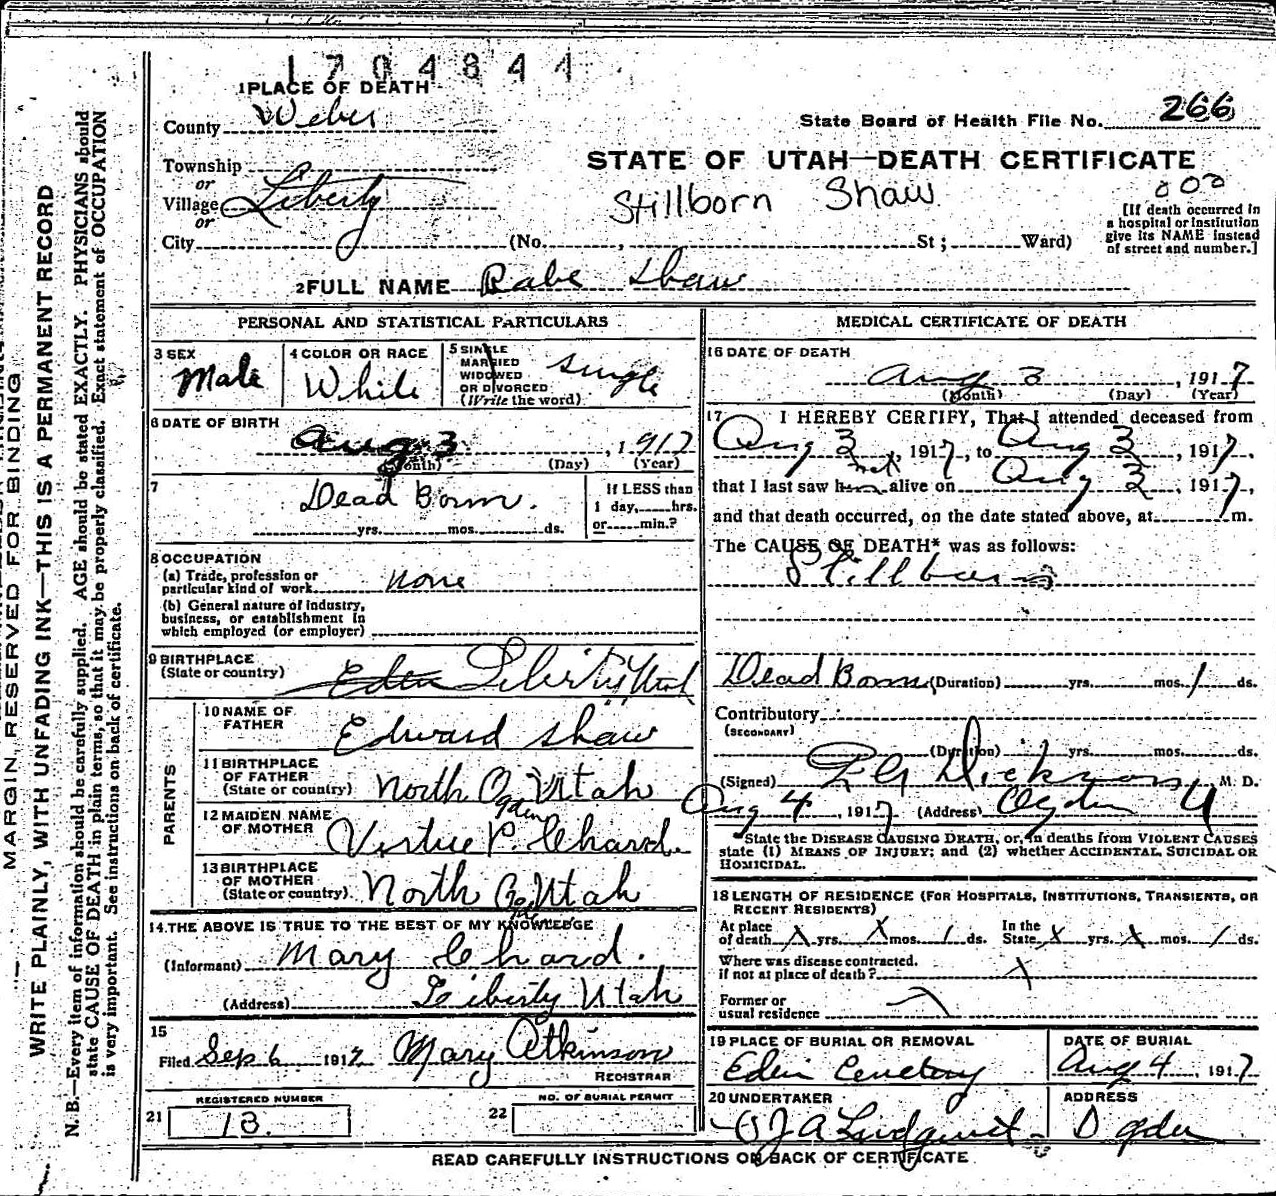 1704844
1 PLACE OF DEATH
County Weber
State Board of Health File No. 266
Township
or
Village Liberty
or
City
STATE OF UTAH—DEATH CERTIFICATE
Stillborn Shaw
(No. , St ; Ward)
000
[If death occurred in
a hospital or institution
give its NAME instead
of street and number.]
2 FULL NAME Babe Shaw
PERSONAL AND STATISTICAL PARTICULARS
3 SEX
Male
4 COLOR OR RACE
White
5 SINGLE
MARRIED
WIDOWED
OR DIVORCED
(Write the word)
Single
6 DATE OF BIRTH
Aug 3, 1917
(Month) (Day) (Year)
7
Dead Born.
yrs. mos. ds.
If LESS than
1 day, hrs.
or min.?
8 OCCUPATION
(a) Trade, profession or
particular kind of work none
(b) General nature of industry,
business, or establishment in
which employed (or employer)
9 BIRTHPLACE
(State or country) Eden Liberty Utah
PARENTS
10 NAME OF
FATHER Edward Shaw
11 BIRTHPLACE
OF FATHER
(State or country) North Ogden Utah
12 MAIDEN NAME
OF MOTHER Virtue P. Chard.
13 BIRTHPLACE
OF MOTHER
(State or country) North Ogden Utah
14. THE ABOVE IS TRUE TO THE BEST OF MY KNOWLEDGE
(Informant) Mary Chard.
(Address) Liberty Utah
15
Filed Sep 6 1917 Mary Atkinson
REGISTRAR
REGISTERED NUMBER
21 13.
NO. OF BURIAL PERMIT
22
MEDICAL CERTIFICATE OF DEATH
16 DATE OF DEATH
Aug 3, 1917
(Month) (Day) (Year)
17 I HEREBY CERTIFY, That I attended deceased from
Aug 3, 1917, to Aug 3, 1917,
not
that I last saw him alive on Aug 3, 1917,
and that death occurred, on the date stated above, at m.
The CAUSE OF DEATH* was as follows:
Stillborn
Dead Born (Duration) yrs. mos. 1 ds.
Contributory
(SECONDARY)
(Duration) yrs. mos. ds.
(Signed) Dickson M. D.
Aug 4, 1917 (Address) Ogden U
State the DISEASE CAUSING DEATH, or, in deaths from VIOLENT CAUSES
state (1) MEANS OF INJURY; and (2) whether ACCIDENTAL, SUICIDAL OR
HOMICIDAL.
18 LENGTH OF RESIDENCE (FOR HOSPITALS, INSTITUTIONS, TRANSIENTS, OR
RECENT RESIDENTS)
At place
of death X yrs. X mos. 1 ds. In the
State X yrs. X mos. 1 ds.
Where was disease contracted.
if not at place of death? X
Former or
usual residence
19 PLACE OF BURIAL OR REMOVAL
Eden Cemetery
DATE OF BURIAL
Aug 4, 1917
20 UNDERTAKER
J A Lindquist
ADDRESS
Ogden
READ CAREFULLY INSTRUCTIONS ON BACK OF CERTIFICATE
MARGIN RESERVED FOR BINDING
WRITE PLAINLY, WITH UNFADING INK—THIS IS A PERMANENT RECORD
N. B.—Every item of information should be carefully supplied. AGE should be stated EXACTLY. PHYSICIANS should
state CAUSE OF DEATH in plain terms, so that it may be properly classified. Exact statement of OCCUPATION
is very important. See instructions on back of certificate.